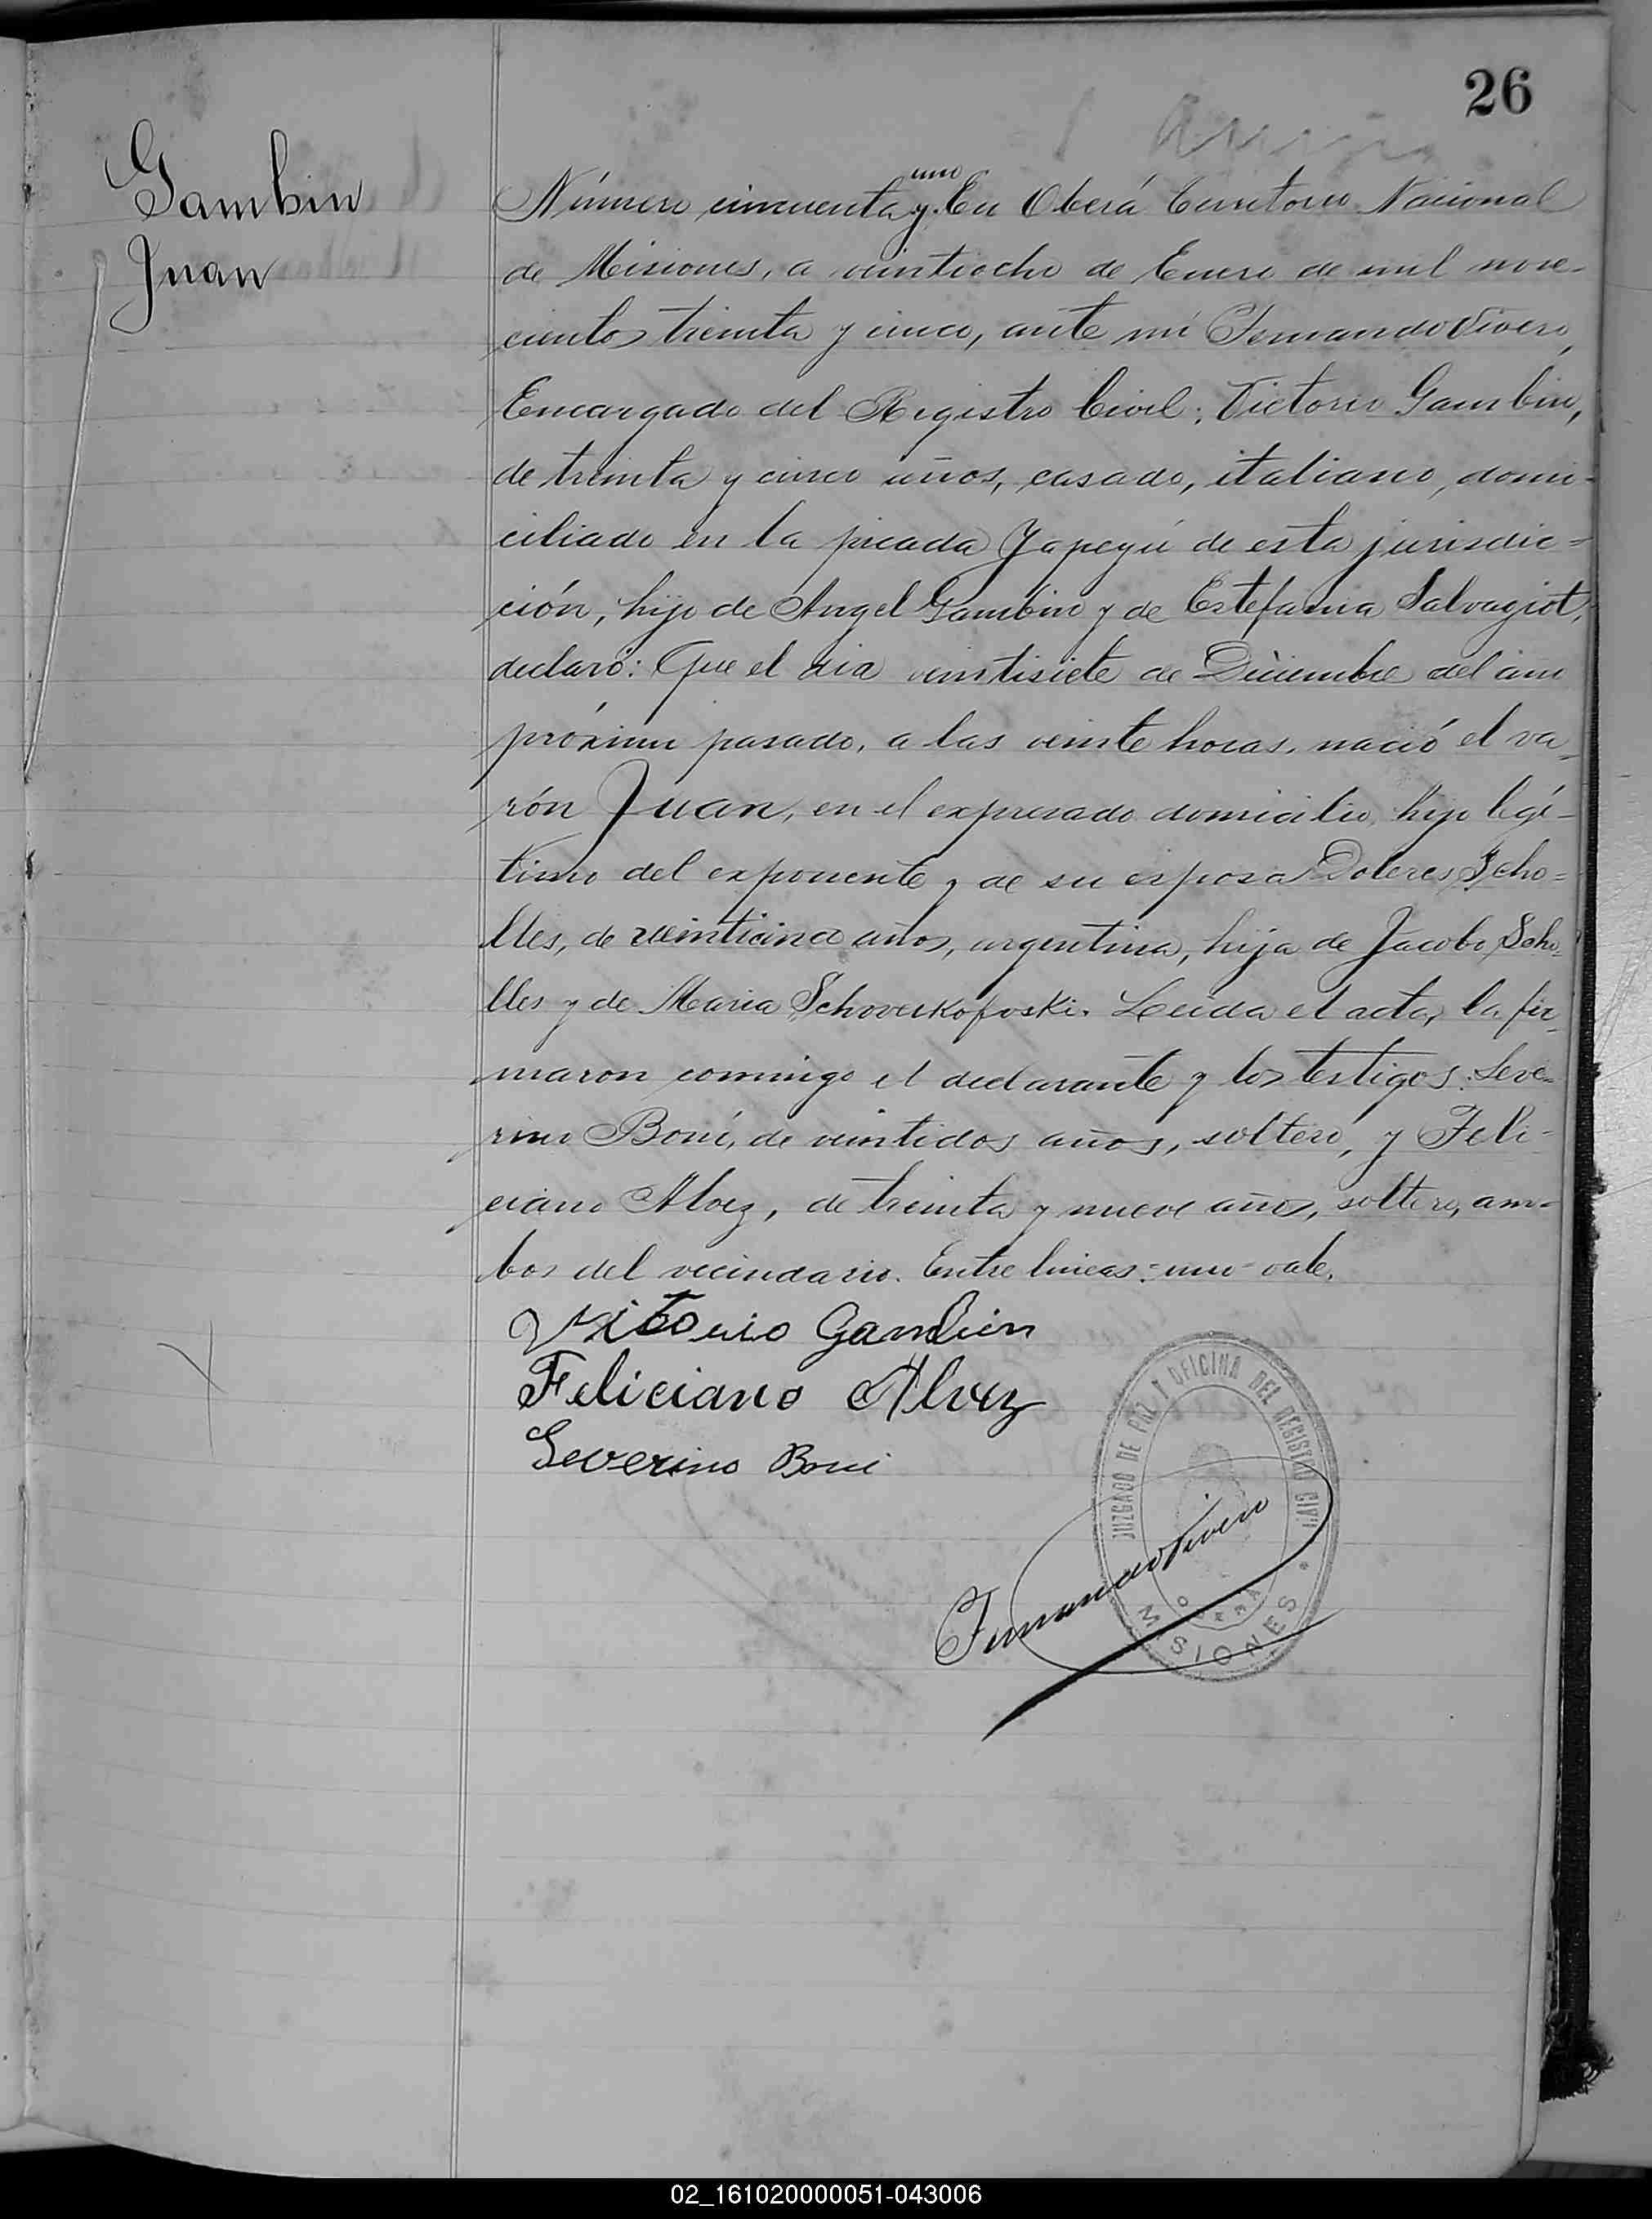 26
Gambin
Juan
uno
Número cincuenta y. En Oberá Territorio Nacional
de Misiones, a veintiocho de Enero de mil nove-
cientos treinta y cinco, ante mí Fernando Vivero,
Encargado del Registro Civil; Victorio Gambin,
de treinta y cinco años, casado, italiano, domi-
ciliado en la picada Yapeyú de esta jurisdic=
ción, hijo de Angel Gambin y de Estefania Salvagiot,
declaró: Que el día veintisiete de Diciembre del año
próximo pasado, a las veinte horas, nació el va-
rón Juan, en el expresado domicilio, hijo legí-
timo del exponente y de su esposa Dolores Scho=
lles, de veinticinco años, argentina, hija de Jacobo Scho-
lles y de Maria Schoverkofoski. Leída el acta, la fir-
maron conmigo el declarante y los testigos: Seve-
rino Boni, de veintidos años, soltero, y Feli-
ciano Alvez, de treinta y nueve años, soltero, am-
bos del vecindario. Entre lineas:=uno=vale.
Vitorio Gambin
Feliciano Alvez
Severino Boni
JUZGADO DE PAZ Y OFICINA DEL REGISTRO CIVIL
OBERA
MISIONES
Fernando Vivero
02_161020000051-043006